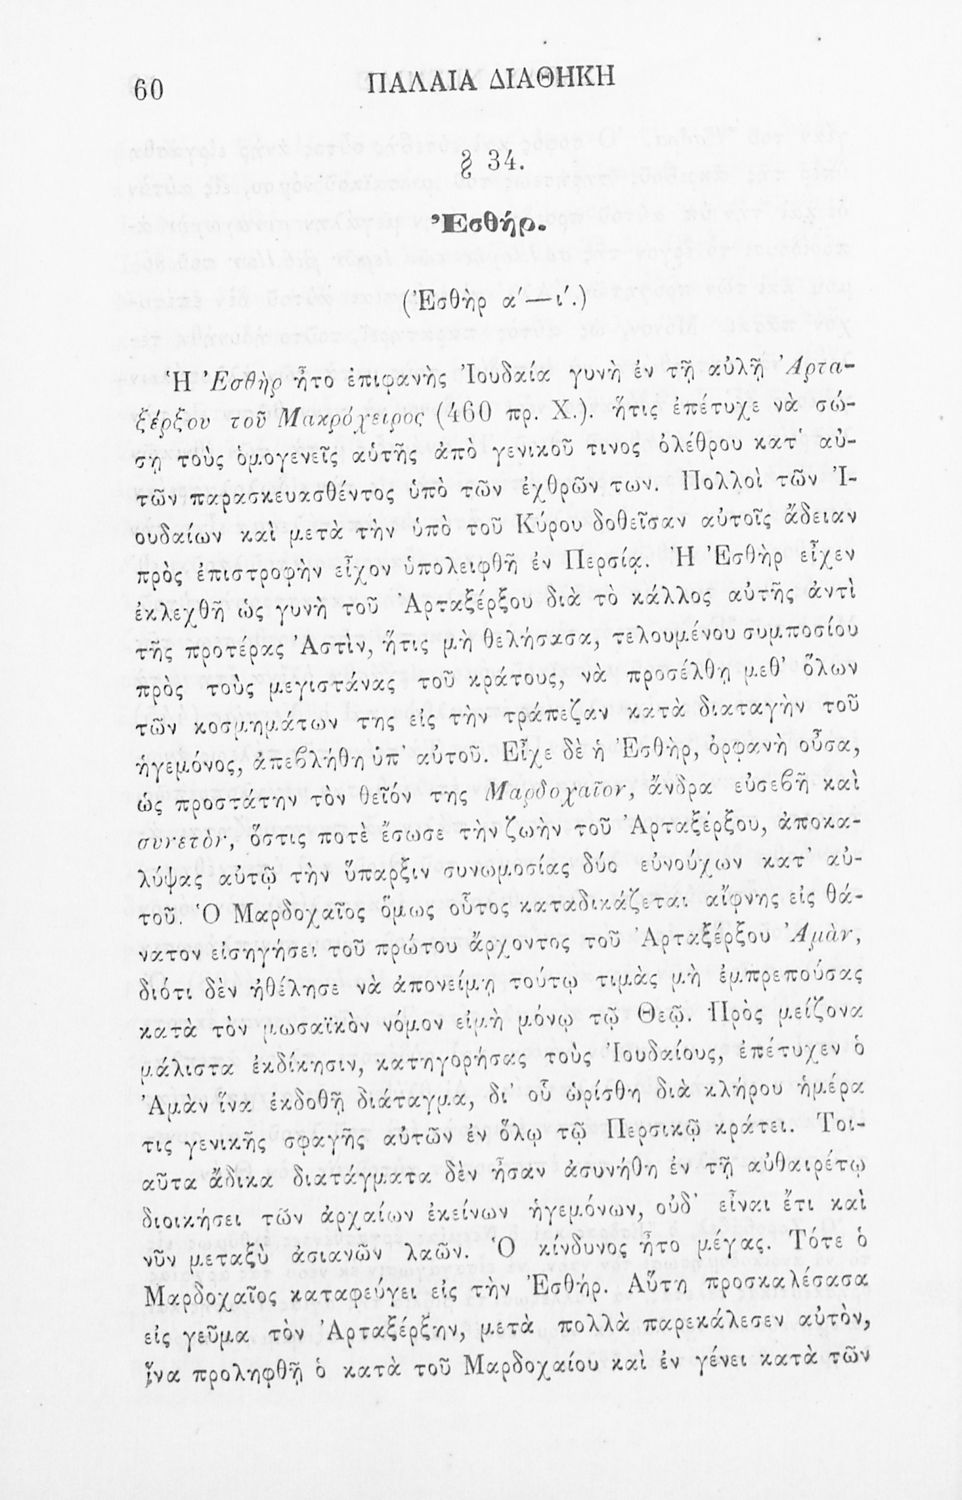 60
ΠΑΛΑΙΑ ΔΙΑΘΗΚΗ
§ 34.
Ἐσθήρ.
(Ἐσθὴρ α΄—ι΄.)
Ἡ Ἐσθὴρ ἦτο ἐπιφανὴς Ἰουδαία γυνὴ ἐν τῇ αὐλῇ Ἀρτα-
ξέρξου τοῦ Μακρόχειρος (460 πρ. Χ.). ἥτις ἐπέτυχε νὰ σώ-
σῃ τοὺς ὁμογενεῖς αὐτῆς ἀπὸ γενικοῦ τινος ὀλέθρου κατ᾽ αὐ-
τῶν παρασκευασθέντος ὑπὸ τῶν ἐχθρῶν των. Πολλοὶ τῶν Ἰ-
ουδαίων καὶ μετὰ τὴν ὑπὸ τοῦ Κύρου δοθεῖσαν αὐτοῖς ἄδειαν
πρὸς ἐπιστροφὴν εἶχον ὑπολειφθῆ ἐν Περσίᾳ. Ἡ Ἐσθὴρ εἶχεν
ἐκλεχθῆ ὡς γυνὴ τοῦ Ἀρταξέρξου διὰ τὸ κάλλος αὐτῆς ἀντὶ
τῆς προτέρας Ἀστὶν, ἥτις μὴ θελήσασα, τελουμένου συμποσίου
πρὸς τοὺς μεγιστάνας τοῦ κράτους, νὰ προσέλθῃ μεθ᾽ ὅλων
τῶν κοσμημάτων της εἰς τὴν τράπεζαν κατὰ διαταγὴν τοῦ
ἡγεμόνος, ἀπεβλήθη ὑπ᾽ αὐτοῦ. Εἶχε δὲ ἡ Ἐσθὴρ, ὀρφανὴ οὖσα,
ὡς προστάτην τὸν θεῖόν της Μαρδοχαῖον, ἄνδρα εὐσεβῆ καὶ
συνετὸν, ὅστις ποτὲ ἔσωσε τὴν ζωὴν τοῦ Ἀρταξέρξου, ἀποκα-
λύψας αὐτῷ τὴν ὕπαρξιν συνωμοσίας δύο εὐνούχων κατ᾽ αὐ-
τοῦ. Ὁ Μαρδοχαῖος ὅμως οὗτος καταδικάζεται αἴφνης εἰς θά-
νατον εἰσηγήσει τοῦ πρώτου ἄρχοντος τοῦ Ἀρταξέρξου Ἀμὰν,
διότι δὲν ἠθέλησε νὰ ἀπονείμῃ τούτῳ τιμὰς μὴ ἐμπρεπούσας
κατὰ τὸν μωσαϊκὸν νόμον εἰμὴ μόνῳ τῷ Θεῷ. Πρὸς μείζονα
μάλιστα ἐκδίκησιν, κατηγορήσας τοὺς Ἰουδαίους, ἐπέτυχεν ὁ
Ἀμὰν ἵνα ἐκδοθῇ διάταγμα, δι᾽ οὗ ὡρίσθη διὰ κλήρου ἡμέρα
τις γενικῆς σφαγῆς αὐτῶν ἐν ὅλῳ τῷ Περσικῷ κράτει. Τοι-
αῦτα ἄδικα διατάγματα δὲν ἦσαν ἀσυνήθη ἐν τῇ αὐθαιρέτῳ
διοικήσει τῶν ἀρχαίων ἐκείνων ἡγεμόνων, οὐδ᾽ εἶναι ἔτι καὶ
νῦν μεταξὺ ἀσιανῶν λαῶν. Ὁ κίνδυνος ἦτο μέγας. Τότε ὁ
Μαρδοχαῖος καταφεύγει εἰς τὴν Ἐσθήρ. Αὕτη προσκαλέσασα
εἰς γεῦμα τὸν Ἀρταξέρξην, μετὰ πολλὰ παρεκάλεσεν αὐτὸν,
ἵνα προληφθῇ ὁ κατὰ τοῦ Μαρδοχαίου καὶ ἐν γένει κατὰ τῶν